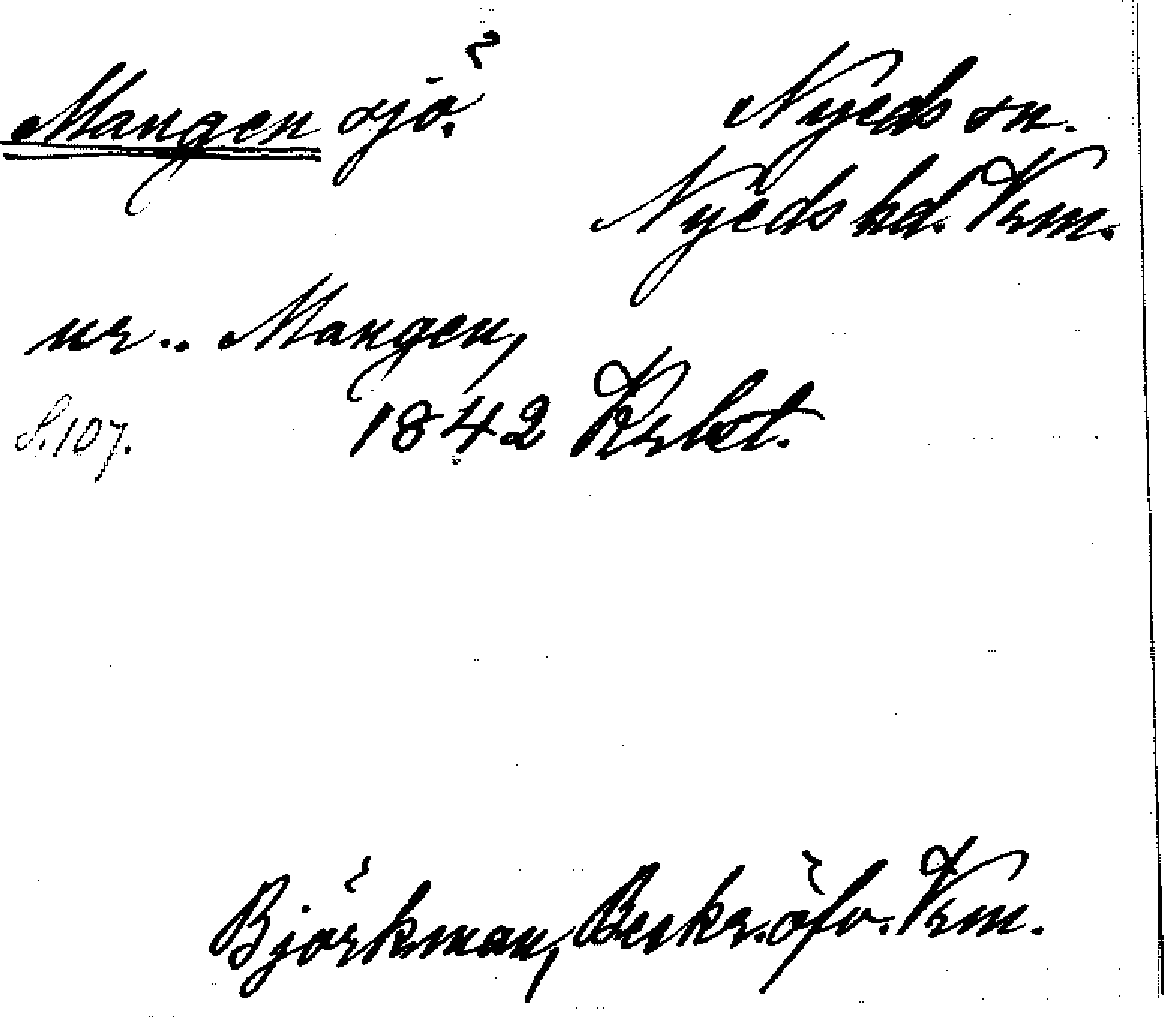 Mangen sjö.
Nyeds sn.
Nyeds hd. Vrm.
nr .. Mangen,
S. 107.
1842
Björkman, Beskr. öfv. Vrm.